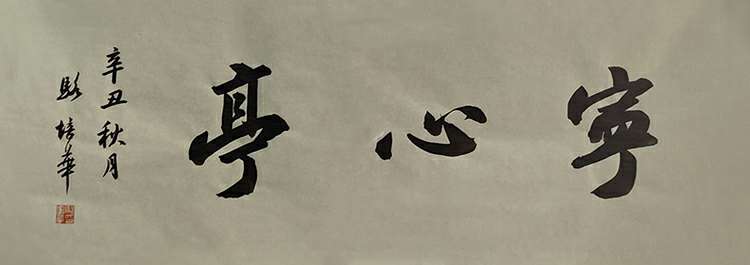 寧心亭
辛丑秋月
駱培華